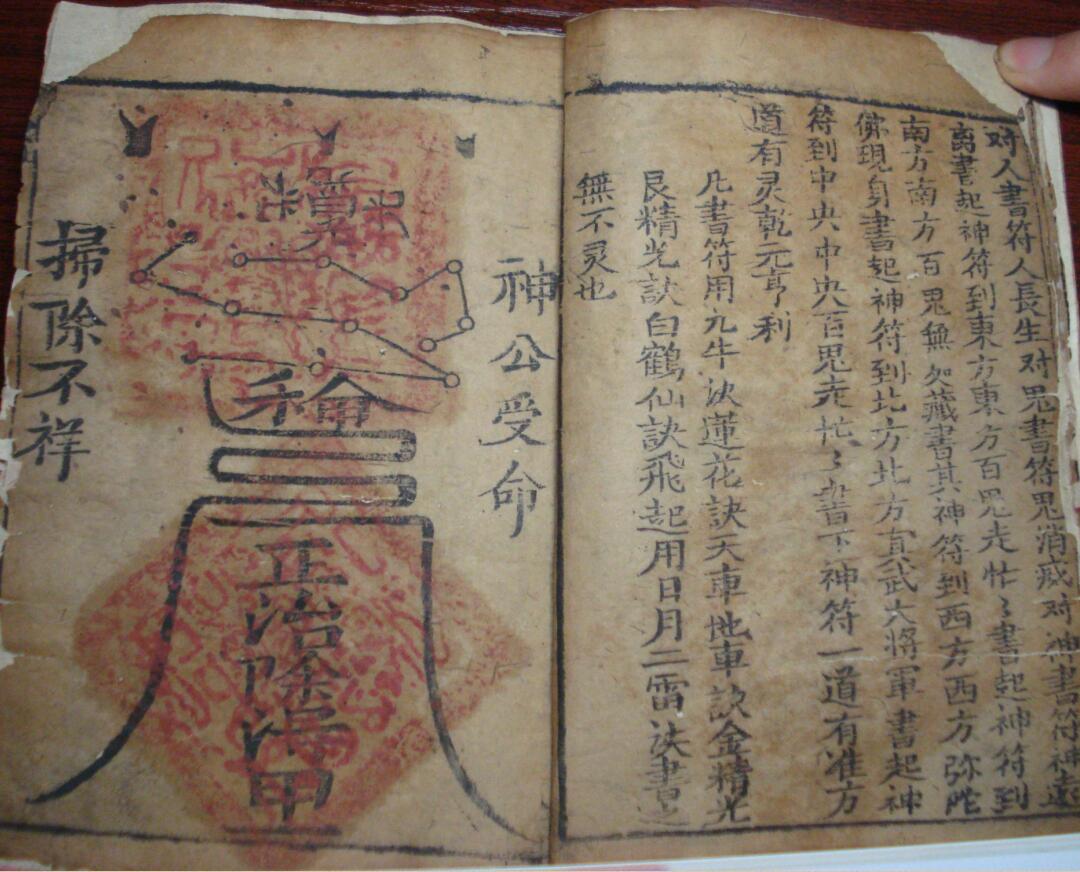 对人書符人長生对鬼書符鬼消滅对神書符神遠
离書起神符到東方東方百鬼走忙〻書起神符到
南方南方百鬼無処藏書其神符到西方西方弥陀
佛現身書起神符到北方北方真武大將軍書起神
符到中央中央百鬼走忙〻書下神符一道有准方
道有灵乾元亨利
凡書符用九牛決蓮花訣天車地車訣金精光
艮精光訣白鶴仙訣飛起用日月二雷決書
無不灵也
神公受命
正治除
甲
掃除不祥